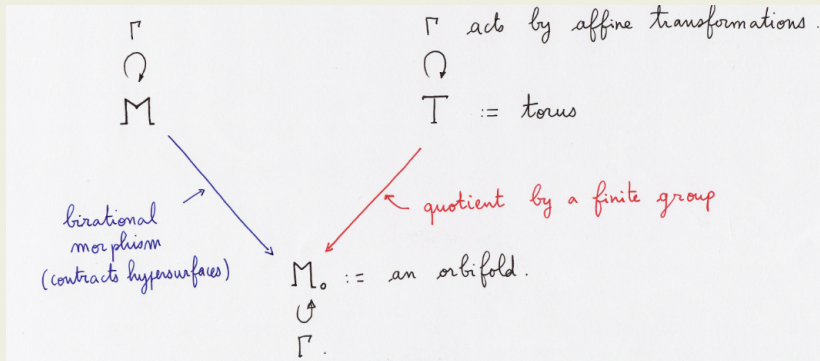 Γ
Γ acts by affine transformations.
M
T := torus
birational
morphism
(contracts hypersurfaces)
quotient by a finite group
M₀ := an orbifold.
Γ.